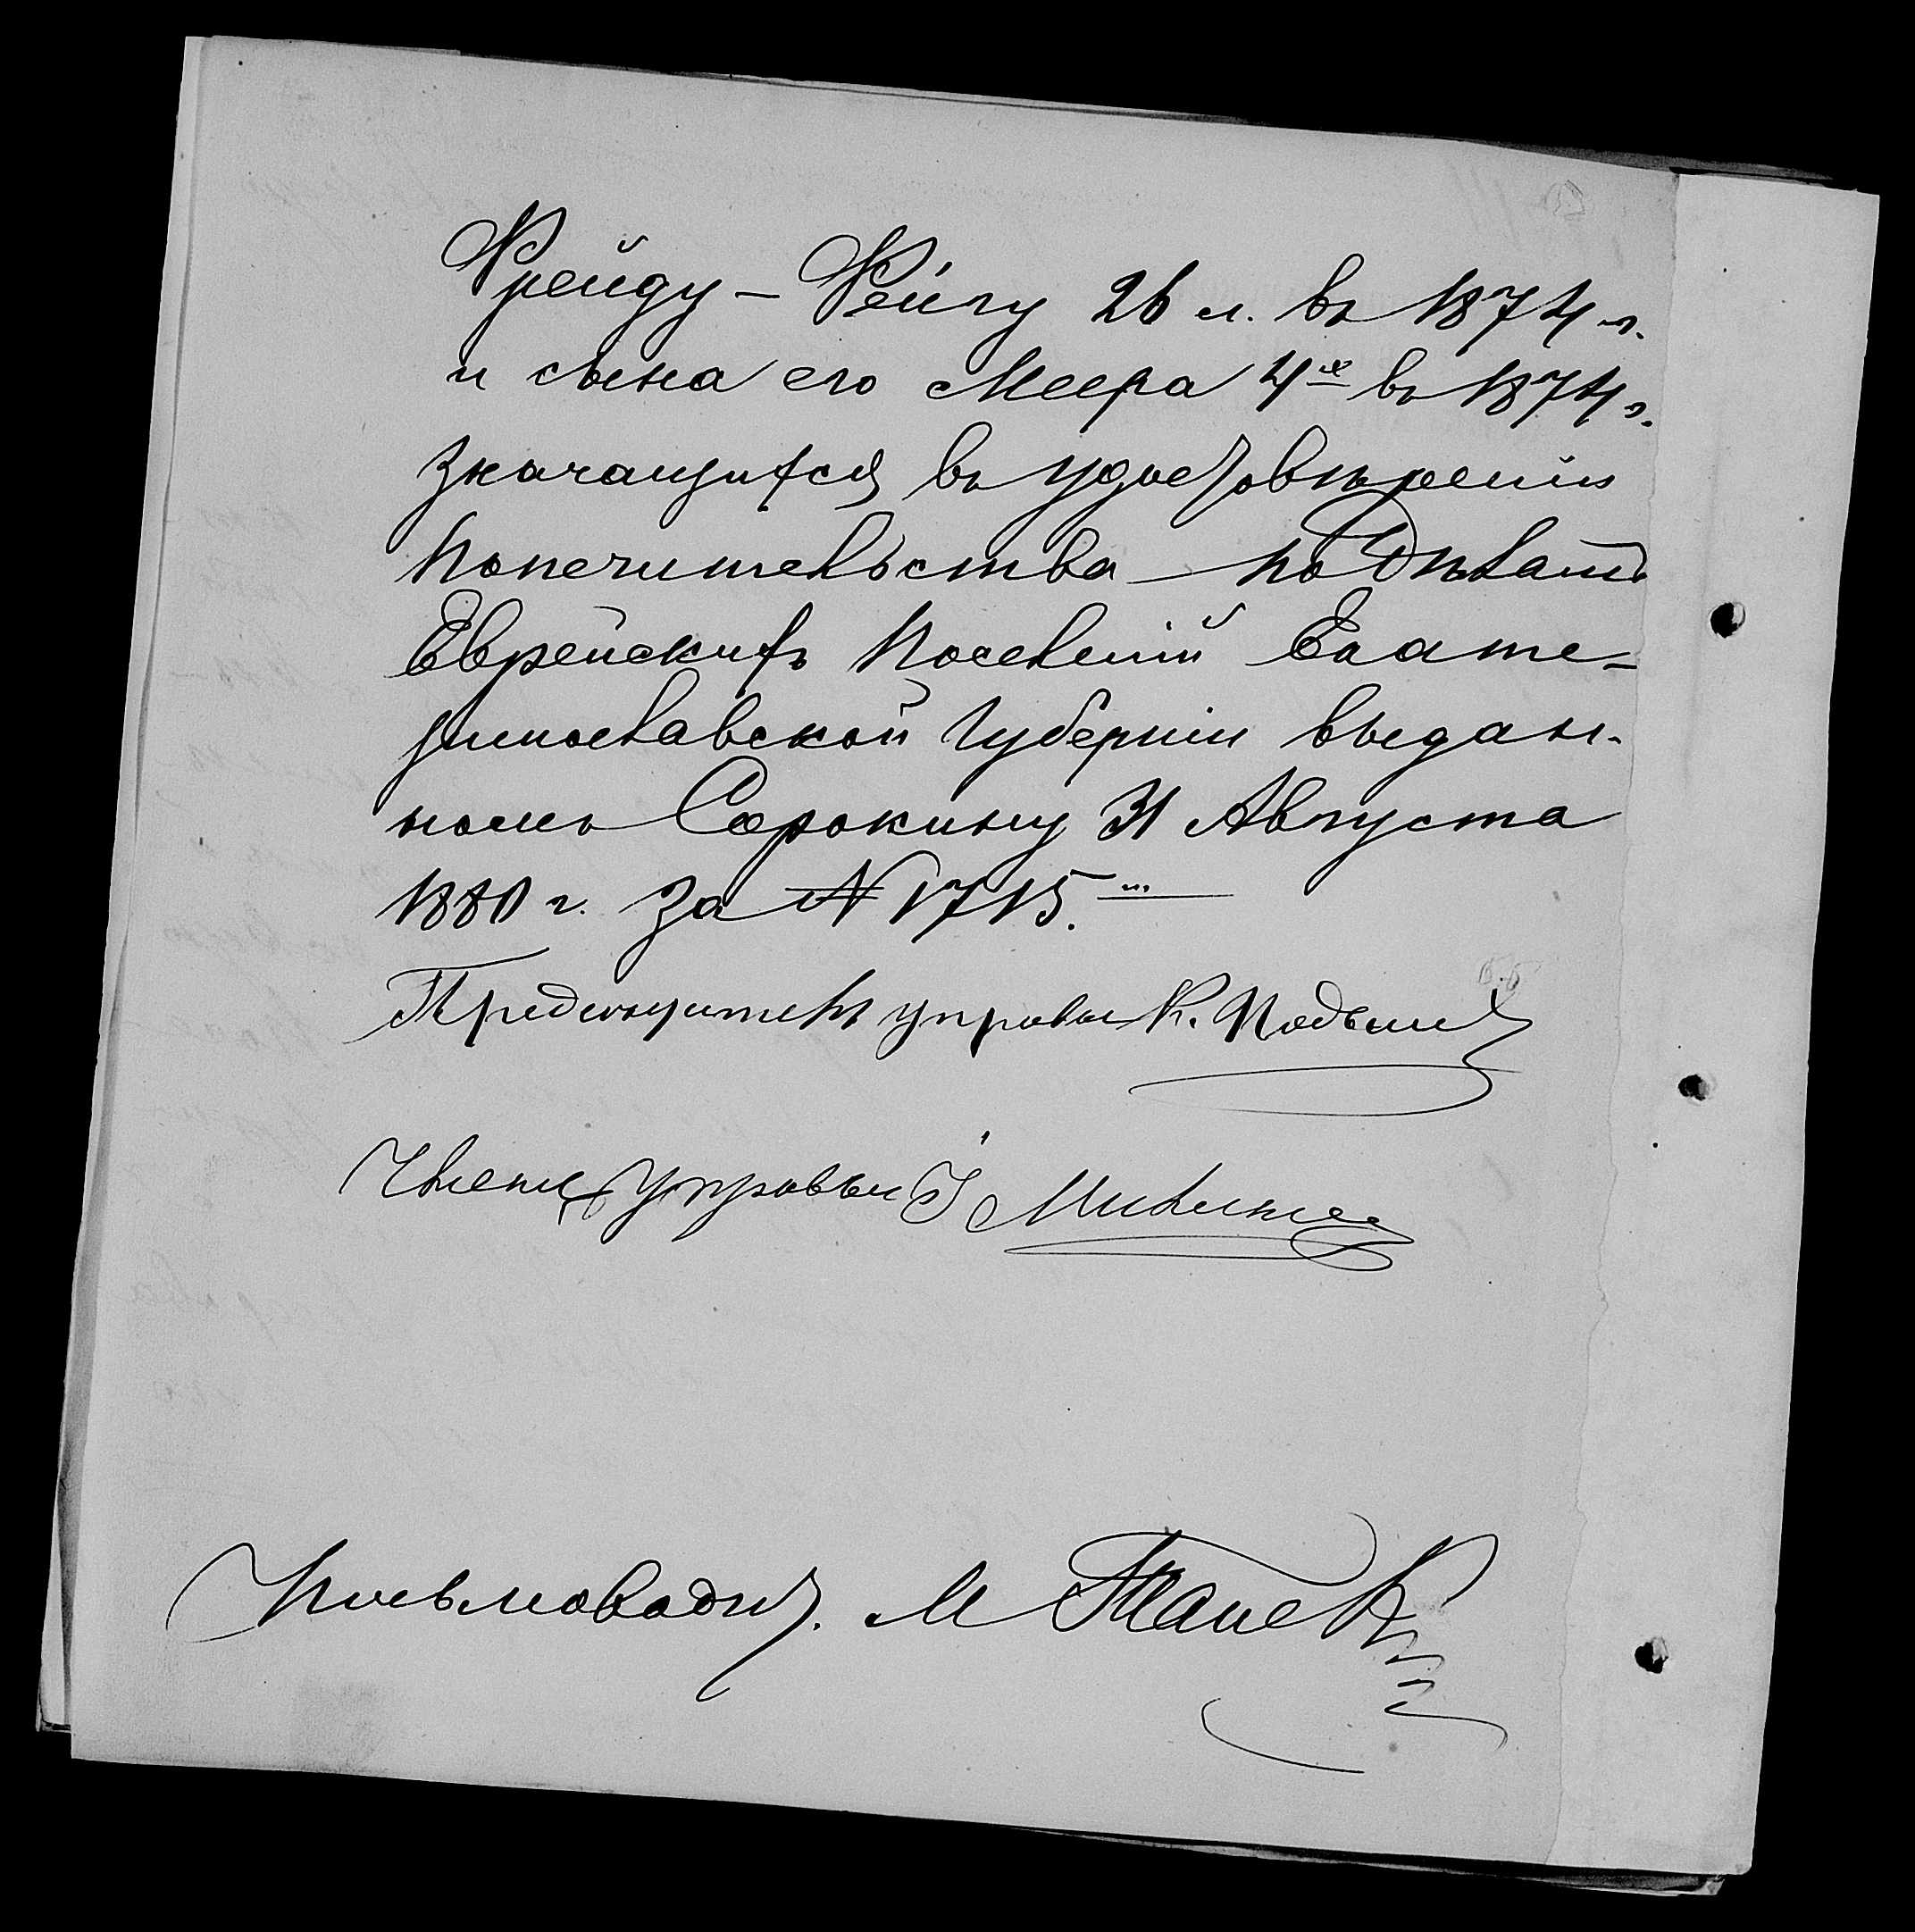 Фрейду - Фейгу 26 л. въ 1874 г.
и сына его Меера 4хъ въ 1874 г.
значащихся въ удостовѣреніи
Попечительства по Дѣламъ
Еврейскихъ Поселеній Екате-
ринославской Губерніи выдан-
номъ Сорокину 31 Августа
1880 г. за № 1715.
Предсѣдатель управы К.
Членъ Управы
Письмоводит. М